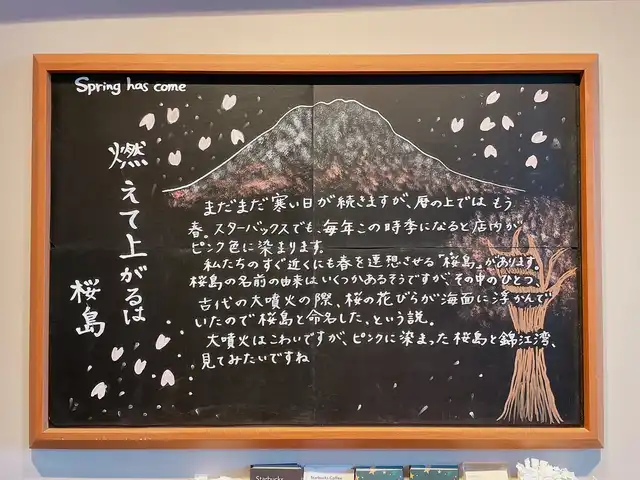 Spring has come
燃えて上がるは
桜島
まだまだ寒い日が続きますが、暦の上では もう
春。スターバックスでも、毎年この時季になると店内が
ピンク色に染まります。
私たちのすぐ近くにも春を連想させる"桜島"があります。
桜島の名前の由来はいくつかあるそうですが、その中のひとつ、
古代の大噴火の際、桜の花びらが海面に浮かんで
いたので桜島と命名した、という説。
大噴火はこわいですが、ピンクに染まった桜島と錦江湾、
見てみたいですね
Starbucks
Starbucks Coffee